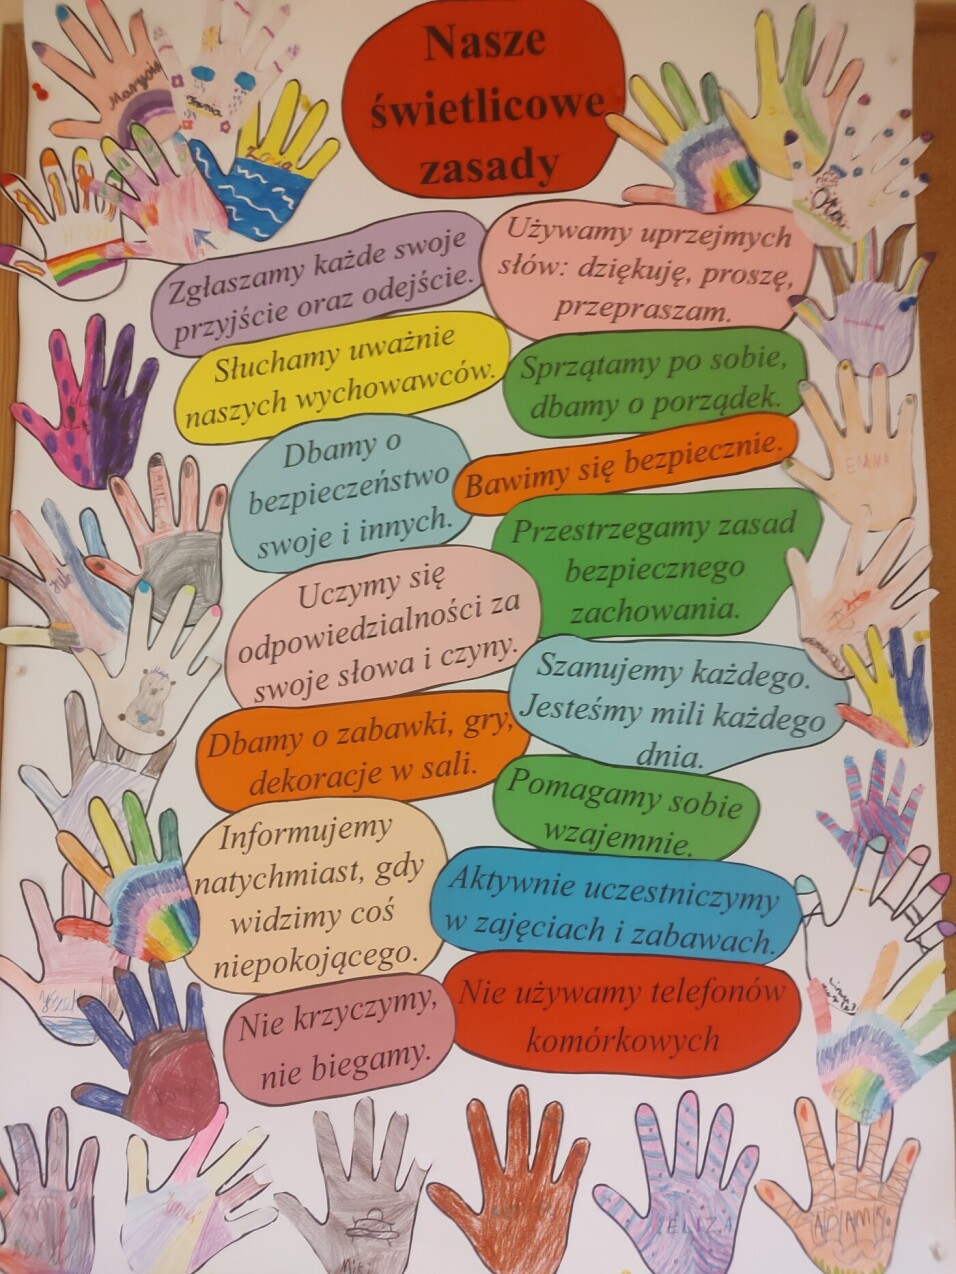 Nasze
świetlicowe
zasady
Marysia
Zosia
Zgłaszamy każde swoje
przyjście oraz odejście.
Używamy uprzejmych
słów: dziękuję, proszę,
przepraszam.
Słuchamy uważnie
naszych wychowawców.
Sprzątamy po sobie,
dbamy o porządek.
Dbamy o
bezpieczeństwo
swoje i innych.
Bawimy się bezpiecznie.
EMMA
Przestrzegamy zasad
bezpiecznego
zachowania.
Uczymy się
odpowiedzialności za
swoje słowa i czyny.
Szanujemy każdego.
Jesteśmy mili każdego
dnia.
Dbamy o zabawki, gry,
dekoracje w sali.
Pomagamy sobie
wzajemnie.
Informujemy
natychmiast, gdy
widzimy coś
niepokojącego.
Aktywnie uczestniczymy
w zajęciach i zabawach.
Nie krzyczymy,
nie biegamy.
Nie używamy telefonów
komórkowych
ELIZA
ADAM